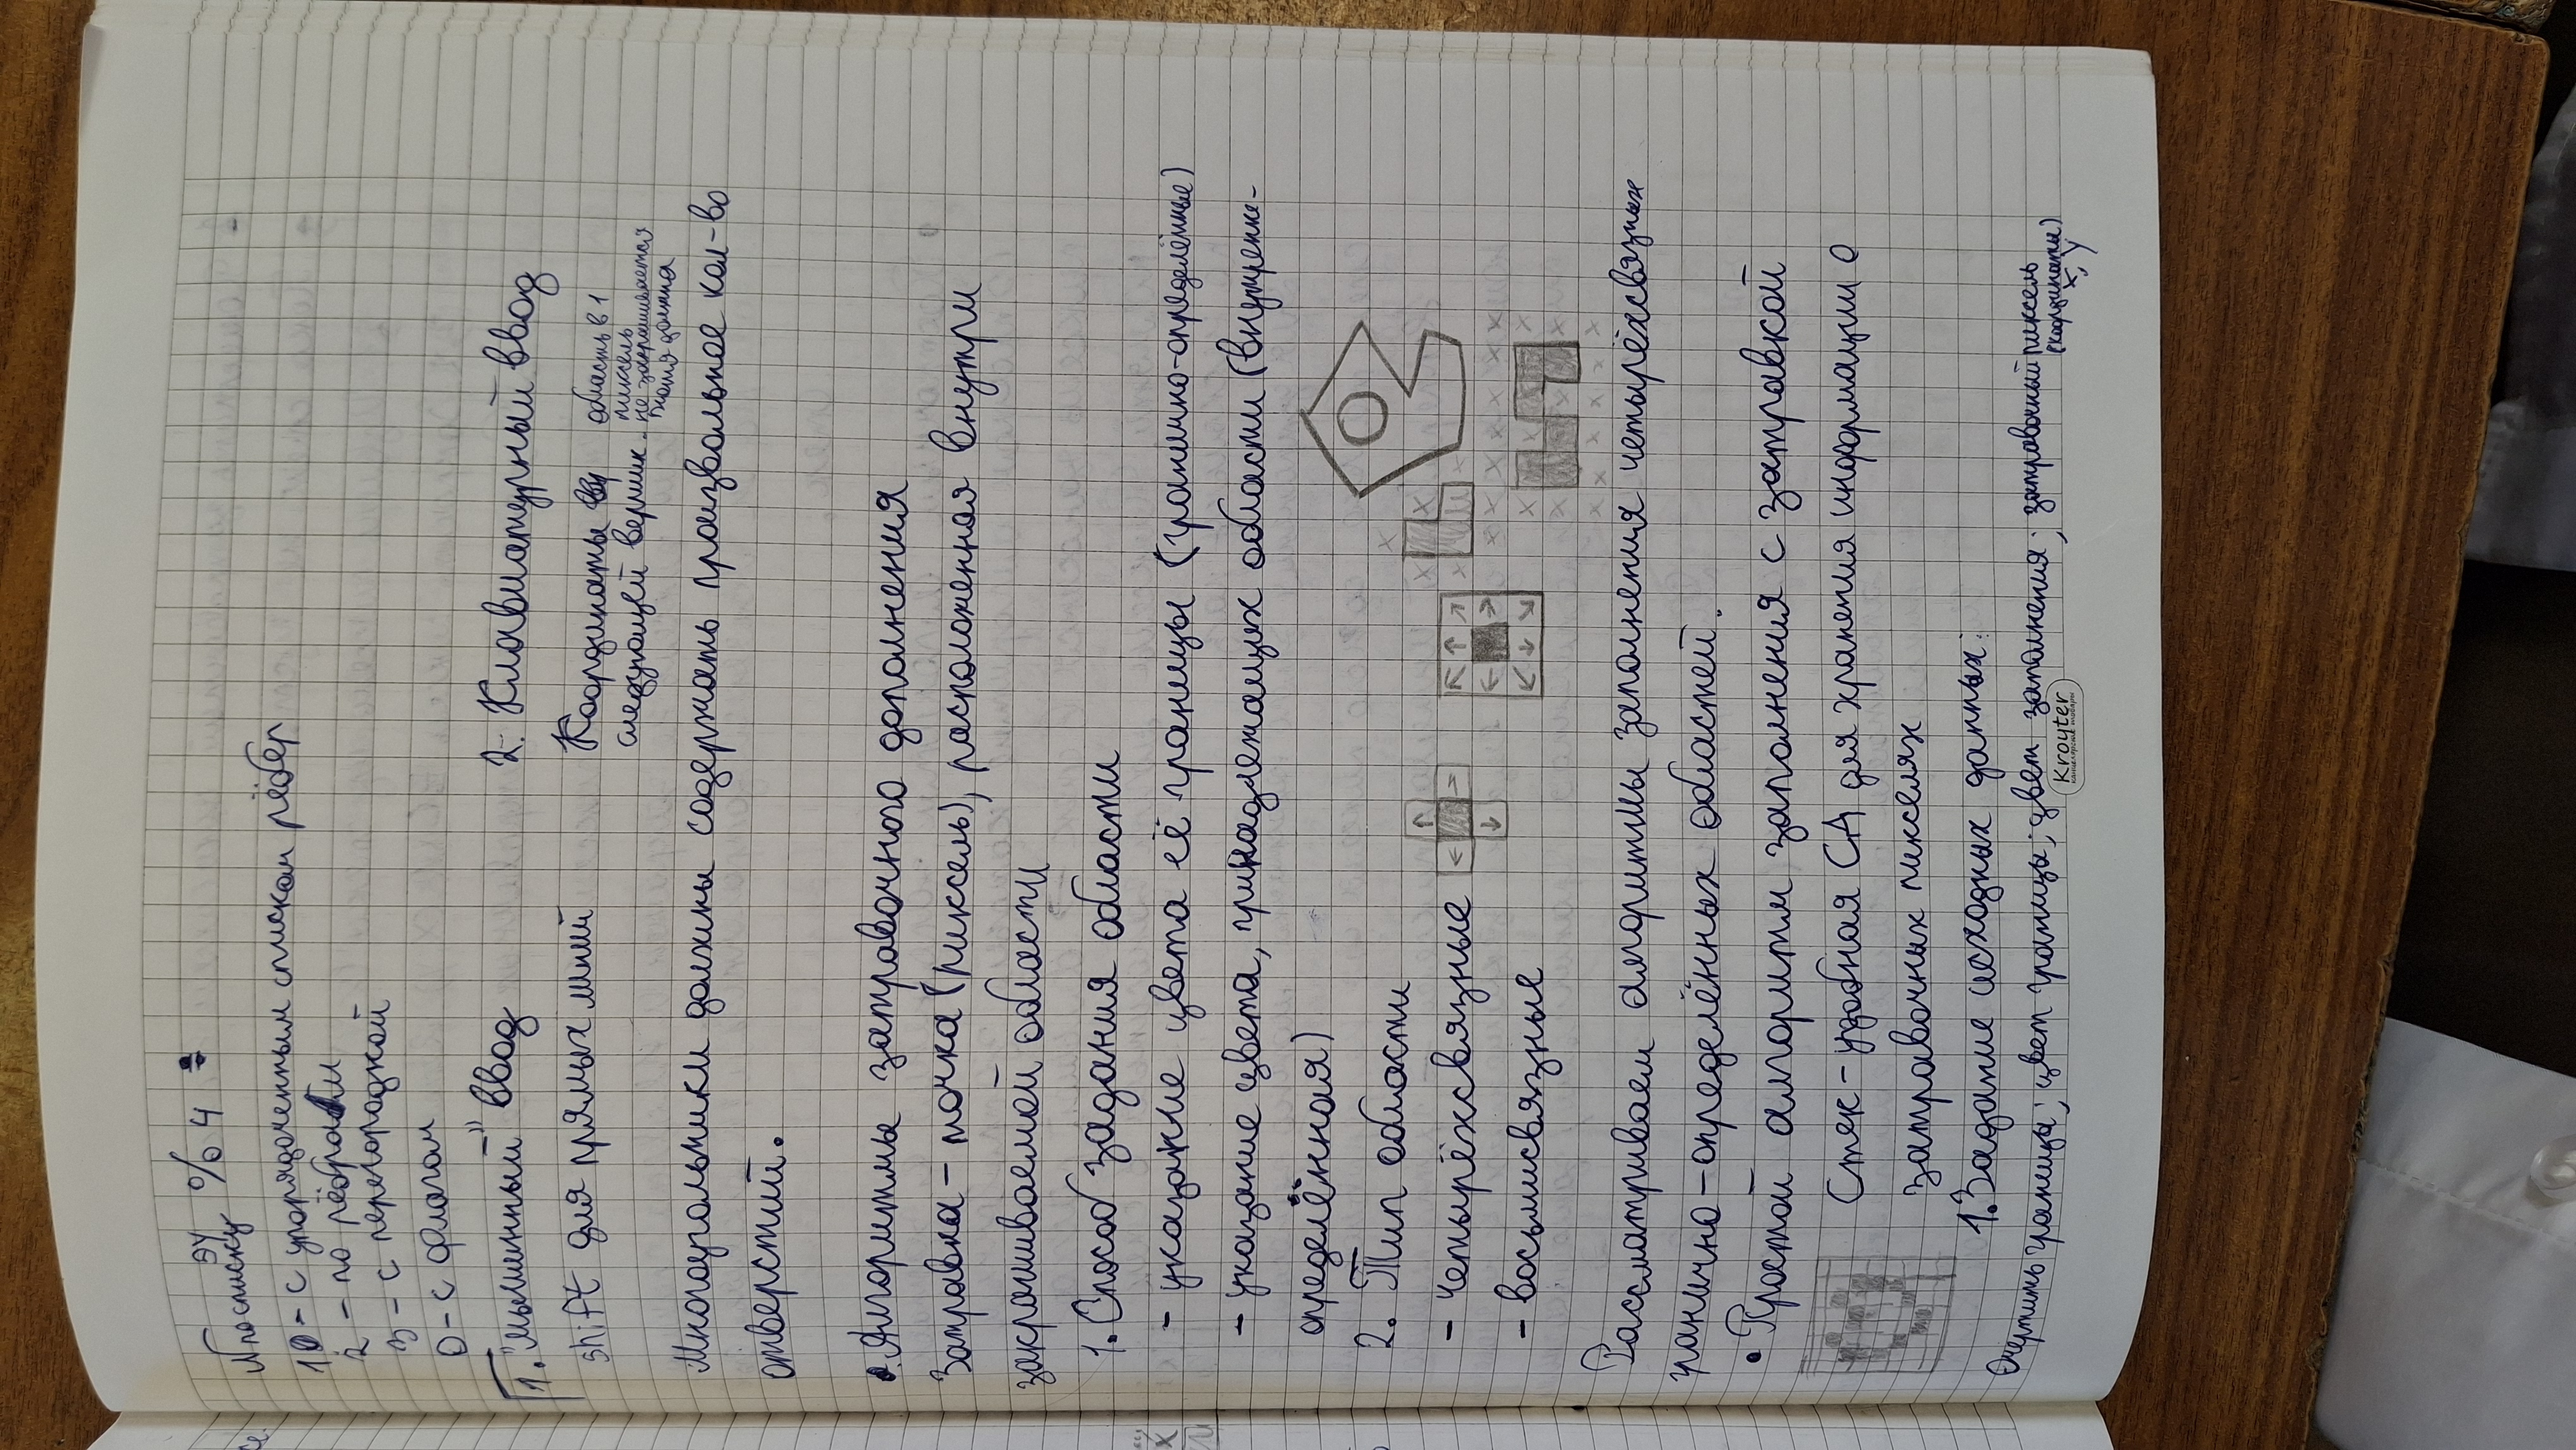 ЭУ
№ по списку % 4 =
1 - с упорядоченным списком рёбер
2 - по рёбрам
3 - с перегородкой
0 - с флагом
1. "мышинный" ввод
2. Клавиатурный ввод
shift для прямых линий
Координаты
следующей вершин.
область в 1
пиксель
не закрашивается
хотя должна
Многоугольники должны содержать произвольное кол-во
отверстий.
• Алгоритмы затравочного дополнения
Затравка - точка (пиксель), расположенная внутри
закрашиваемой области
1. Способ задания области
- указание цвета её границы (гранично-определённые)
- указание цвета, принадлежащих области (внутренне-
определённая)
2. Тип области
- четырёхсвязные
- восьмисвязные
Рассматриваем алгоритмы заполнения четырёхсвязных
гранично-определённых областей.
• Простой алгоритм заполнения с затравкой
Стек - удобная СД для хранения информации о
затравочных пикселях
1. Задание исходных данных:
Очертить границы; цвет границы; цвет заполнения; затравочный пиксель
(координаты)
x, y
Kroyter
канцелярские товары